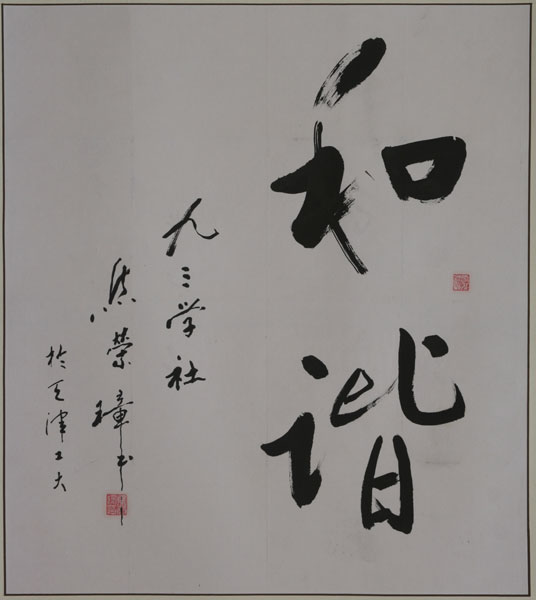 和谐
九三学社
焦荣璋书
於天津工大